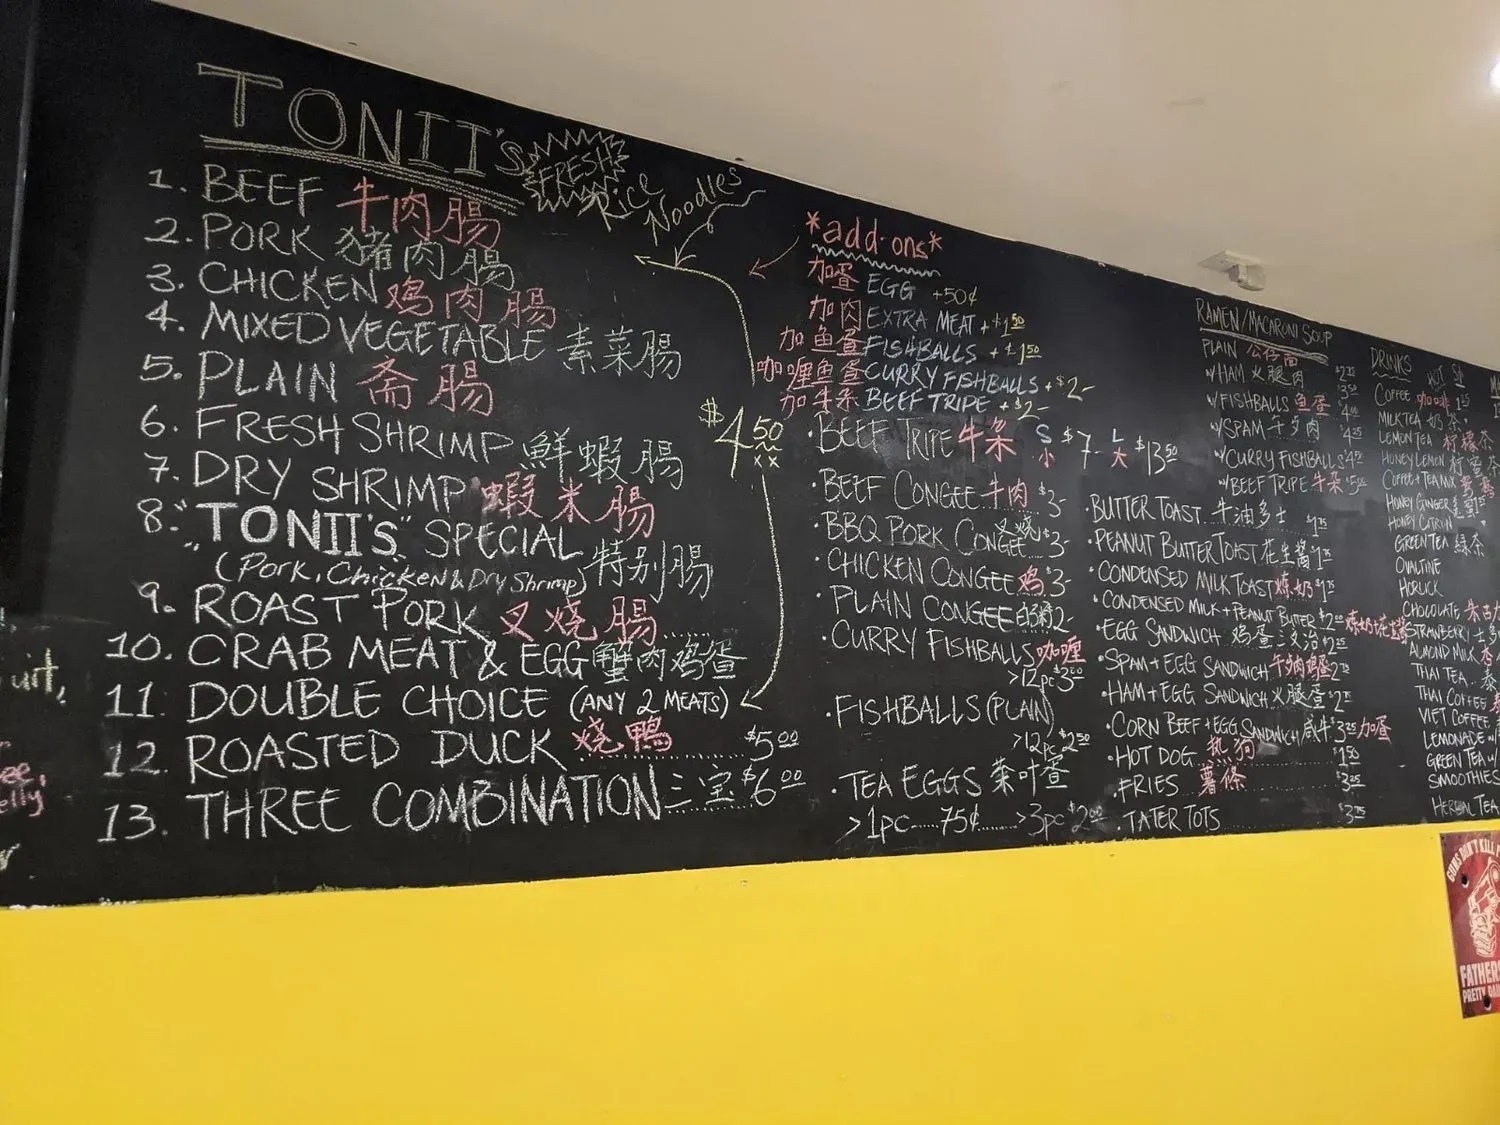 TONII'S
FRESH
Rice Noodles
1. BEEF 牛肉腸
2. PORK 猪肉腸
3. CHICKEN 鸡肉腸
4. MIXED VEGETABLE 素菜腸
5. PLAIN 斋腸
6. FRESH SHRIMP 鮮蝦腸
7. DRY SHRIMP 蝦米腸
8. "TONII'S" SPECIAL
(Pork, Chicken & Dry Shrimp) 特别腸
9. ROAST PORK 叉烧腸
10. CRAB MEAT & EGG 蟹肉鸡蛋
11. DOUBLE CHOICE (ANY 2 MEATS)
$4.50
12. ROASTED DUCK 烧鴨 $5.00
13. THREE COMBINATION 三宝 $6.00
*add-ons*
加蛋 EGG +50¢
加肉 EXTRA MEAT +$1.50
加鱼蛋 FISHBALLS +$1.50
咖喱鱼蛋 CURRY FISHBALLS +$2-
加牛杂 BEEF TRIPE +$2-
· BEEF TRIPE 牛杂 S小 $7- L大 $13.50
· BEEF CONGEE 牛肉 $3-
· BBQ PORK CONGEE 叉烧 $3-
· CHICKEN CONGEE 鸡 $3-
· PLAIN CONGEE 白粥 2-
· CURRY FISHBALLS 咖喱
>12pc $3.00
· FISHBALLS (PLAIN)
>12pc $2.50
· TEA EGGS 茶叶蛋
>1pc 75¢ >3pc $2.00
RAMEN/MACARONI SOUP
PLAIN 公仔面
w/HAM 火腿肉
w/FISHBALLS 鱼蛋
w/SPAM 午多肉
w/CURRY FISHBALLS
w/BEEF TRIPE 牛杂
· BUTTER TOAST 牛油多士
· PEANUT BUTTER TOAST 花生酱
· CONDENSED MILK TOAST 炼奶
· CONDENSED MILK + PEANUT BUTTER $2.00 炼奶+花生酱
· EGG SANDWICH 鸡蛋三文治
· SPAM + EGG SANDWICH 午多肉鸡蛋
· HAM + EGG SANDWICH 火腿蛋
· CORN BEEF + EGG SANDWICH 咸牛 加蛋
· HOT DOG 热狗
· FRIES 薯条
· TATER TOTS
DRINKS
COFFEE 咖啡
MILK TEA 奶茶
LEMON TEA 柠檬茶
HONEY LEMON
COFFEE + TEA MIX
HONEY GINGER
HONEY CITRON
GREEN TEA 緑茶
OVALTINE
HORLICK
CHOCOLATE
STRAWBERRY
ALMOND MILK
THAI TEA
THAI COFFEE
VIET COFFEE
LEMONADE
GREEN TEA
SMOOTHIES
HERBAL TEA
FATHERS